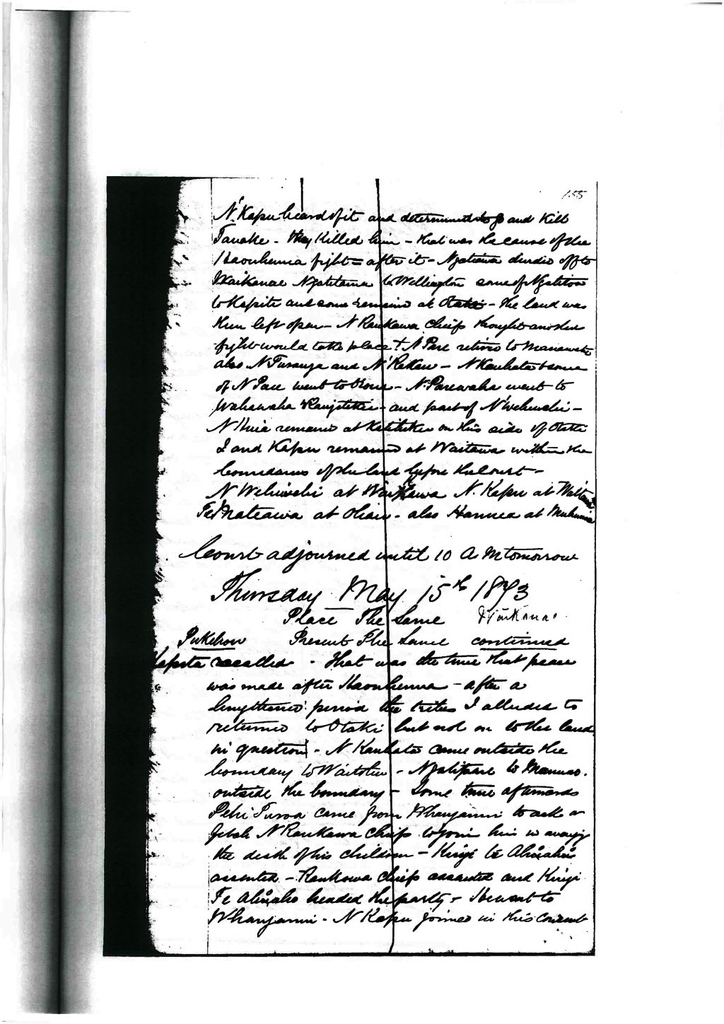 155
N' Kapu heard of it and determined to go and Kill
Tanake - they Killed him - that was the cause of the
Haowhenua fight - after it - Ngatiawa
Waikanae Ngatitama to Wellington some of Ngatitoa
to Kapiti and some remained at Otaki - the land was
then left open - N Raukawa Chiefs thought another
fight would take place & N Pare returned to Manawatu
also N Turanga and N' Rakau - N Kauhata & some
of N Pare went to - N. Parewaha went to
Wahawaha Rangitikei - and part of N' Wehiwehi -
N Huia remained at Katihiku on this side of Otaki
I and Kapu remained at Waitawa within the
boundaries of the land before the Court -
N Wehiwehi at N. Kapu at
Te Mateawa at Ohau - also Hannea at
Court adjourned until 10 A M tomorrow
Thursday May 15th 1873
Place The Same
Present The Same continued
Pukekow
recalled - That was the time that peace
was made after Haowhenua - after a
lengthened period the tribes I alluded to
returned to Otaki but not on to the land
in question - N Kauhata came outside the
boundary to Waitohu - Ngatipare to
outside the boundary - Some time afterwards
Pehi Turoa came from Whanganui to ask or
fetch N Raukawa Chiefs to join him in avenging
the death of his children - Kingi te Ahoaho
assented - Raukawa Chiefs assented and Kingi
Te Ahoaho headed the party - He went to
Whanganui - N Kapu joined in this